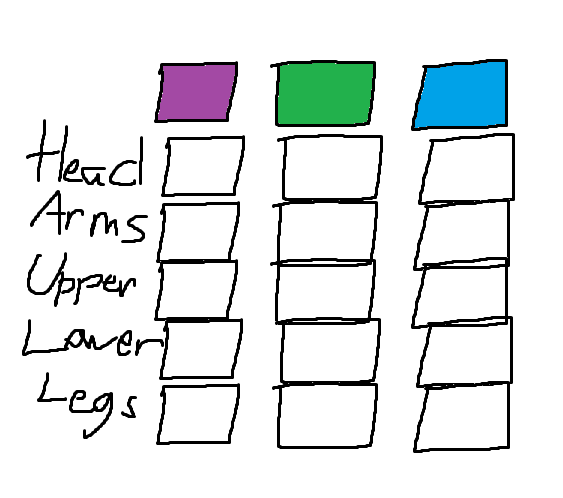 Head
Arms
Upper
Lower
Legs